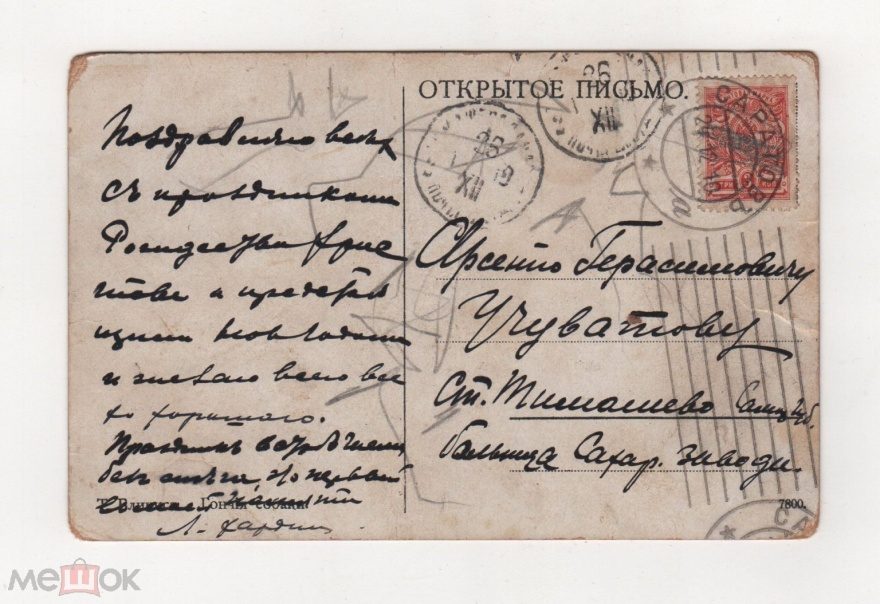 ОТКРЫТОЕ ПИСЬМО.
Поздравляю васъ
съ праздникомъ
Рождества Хрис
това и предсто
ящимъ Новъ Годомъ
и желаю всего все
го хорошаго.
Праздникъ встрѣчаемъ
безъ снѣга, но первый
Арсентію Герасимовичу
Учуватову
Ст. Тимашево Сам. Губ.
больница Сахар. завода.
Гончія собаки
7800.
САРАТОВ
26
XII
19
26
XII
мешок